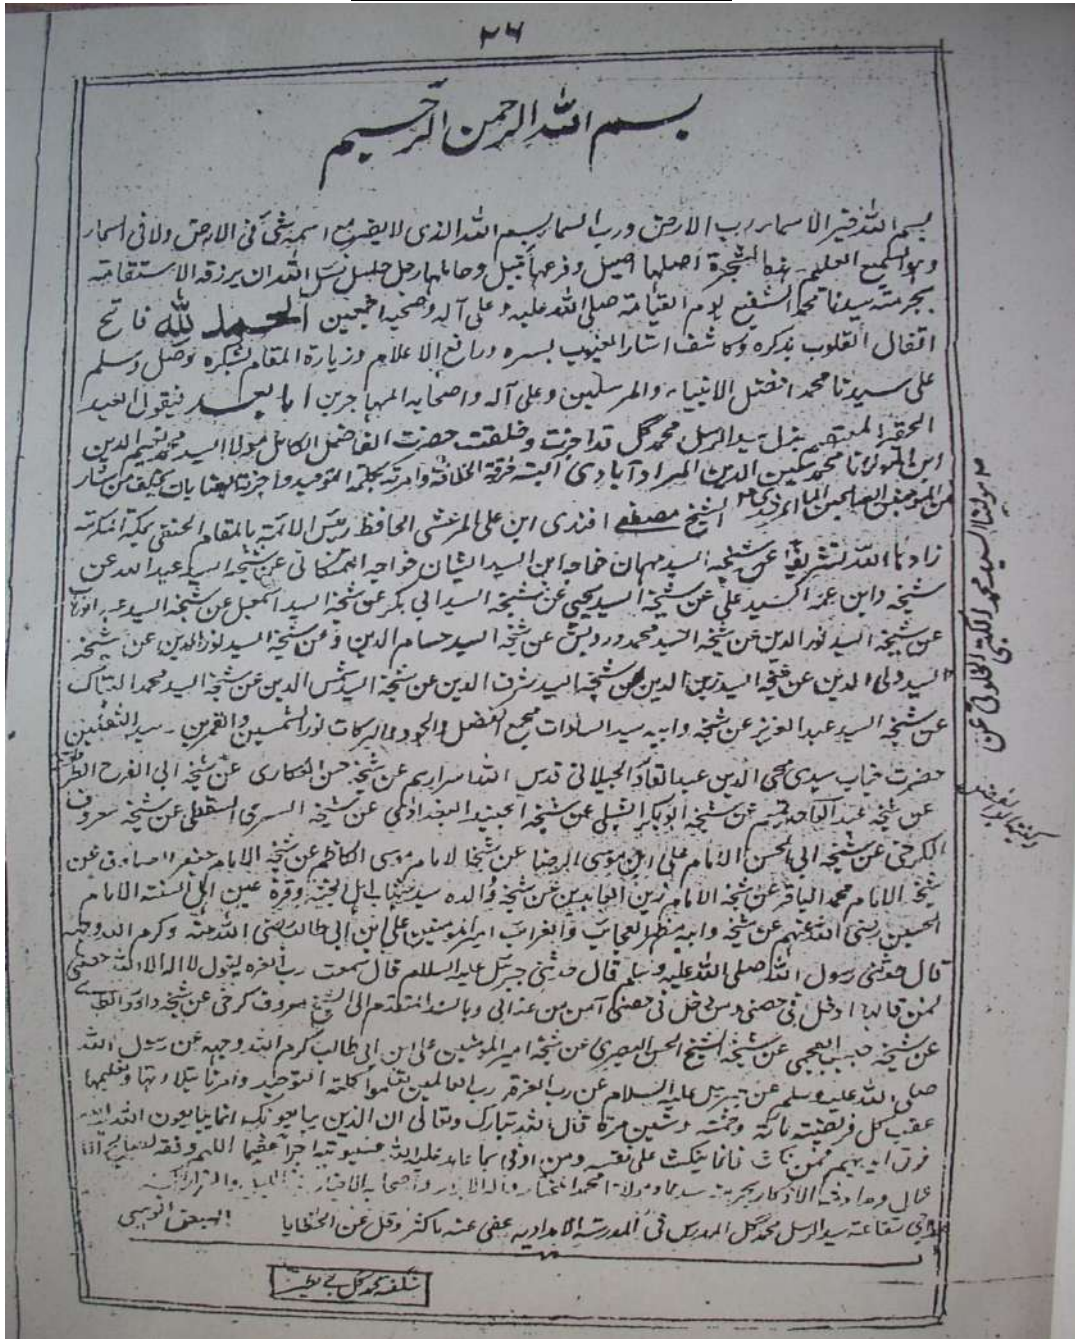 ٢٦
بسم الله الرحمن الرحيم
بسم الله خير الاسماء رب الارض ورب السماء بسم الله الذى لا يضر مع اسمه شئ فى الارض ولا فى السماء
وهو السميع العليم هذه الشجرة اصلها اصيل وفرعها نبيل وحاملها رجل جليل نسئل الله ان يرزقه الاستقامة
بحرمة سيدنا محمد الشفيع يوم القيامة صلى الله عليه وعلى آله وصحبه اجمعين الحمد لله فاتح
اقفال القلوب بذكره وكاشف استار العيوب بسره ورافع الاعلام وزيارة المقام لشكره وصل وسلم
على سيدنا محمد افضل الانبياء والمرسلين وعلى آله واصحابه المهاجرين اما بعد فيقول العبد
الحقير المعتصم بذيل سيد الرسل محمد گل قد اجزت وخلفت حضرت الفاضل الكامل مولانا السيد محمد نعيم الدين
ابن المولانا محمد معين الدين المراد آبادى البسته خرقة الخلافة وامرته بكلمة التوحيد واجزته
من المؤمنين الصالحين الشيخ مصطفى افندى ابن على المرعشى الحافظ رئيس الائمة بالمقام الحنفى بمكة المكرمة
زادها الله تشريفا عن شيخه السيد مهمان خواجه ابن السيد ايشان خواجه عن شيخه السيد عبد الله عن
شيخه وابن عمه السيد على عن شيخه السيد يحيى عن شيخه السيد ابى بكر عن شيخه السيد اسمعيل عن شيخه السيد عبد الوهاب
عن شيخه السيد نور الدين عن شيخه السيد محمد درويش عن شيخه السيد حسام الدين وعن شيخه السيد نور الدين عن شيخه
السيد ولى الدين عن شيخه السيد زين الدين عن شيخه السيد شرف الدين عن شيخه السيد شمس الدين عن شيخه السيد محمد الهتاك
عن شيخه السيد عبد العزيز عن شيخه وابيه سيد السادات مجمع الفضل والجود والبركات نور الشمسين والقمرين سيد الثقلين
حضرت جناب سيدى محى الدين عبد القادر الجيلانى قدس الله اسرارهم عن شيخه حسن الهكارى عن شيخه ابى الفرح الطرطوسى
عن شيخه عبد الواحد عن شيخه ابو بكر الشبلى عن شيخه الجنيد البغدادى عن شيخه السرى السقطى عن شيخه معروف
الكرخى عن شيخه ابى الحسن الامام على ابن موسى الرضا عن شيخه الامام موسى الكاظم عن شيخه الامام جعفر الصادق عن
شيخه الامام محمد الباقر عن شيخه الامام زين العابدين عن شيخه والده سيد شباب اهل الجنة وقرة عين اهل السنة الامام
الحسين رضى الله عنهم عن شيخه وابيه مظهر العجائب والغرائب امير المؤمنين على ابن ابى طالب رضى الله عنه وكرم الله وجهه
قال حدثنى رسول الله صلى الله عليه وسلم قال حدثنى جبرئيل عليه السلام قال سمعت رب العزة يقول لا اله الا الله حصنى
فمن قالها ادخل فى حصنى ومن دخل فى حصنى آمن من عذابى وبالسند المتقدم الى الشيخ معروف كرخى عن شيخه داود الطائى
عن شيخه حبيب العجمى عن شيخه الشيخ الحسن البصرى عن شيخه امير المؤمنين على ابن ابى طالب كرم الله وجهه عن رسول الله
صلى الله عليه وسلم عن جبرئيل عليه السلام عن رب العزة رب العالمين كلمة التوحيد وامرنا بتلاوتها وتعليمها
عقب كل فريضة مائة وخمسة وستين مرة قال الله تبارك وتعالى ان الذين يبايعونك انما يبايعون الله يد الله
فوق ايديهم فمن نكث فانما ينكث على نفسه ومن اوفى بما عاهد عليه الله فسيؤتيه اجرا عظيما اللهم وفقه
الاذكار بحرمة سيدنا ومولانا محمد المختار وآله الابرار واصحابه الاخيار
شفاعة سيد الرسل محمد گل المدرس فى المدرسة الامدادية عفى عنه ما كثر وقل عن الخطايا
مولانا السيد محمد المكى الخلوتى عن